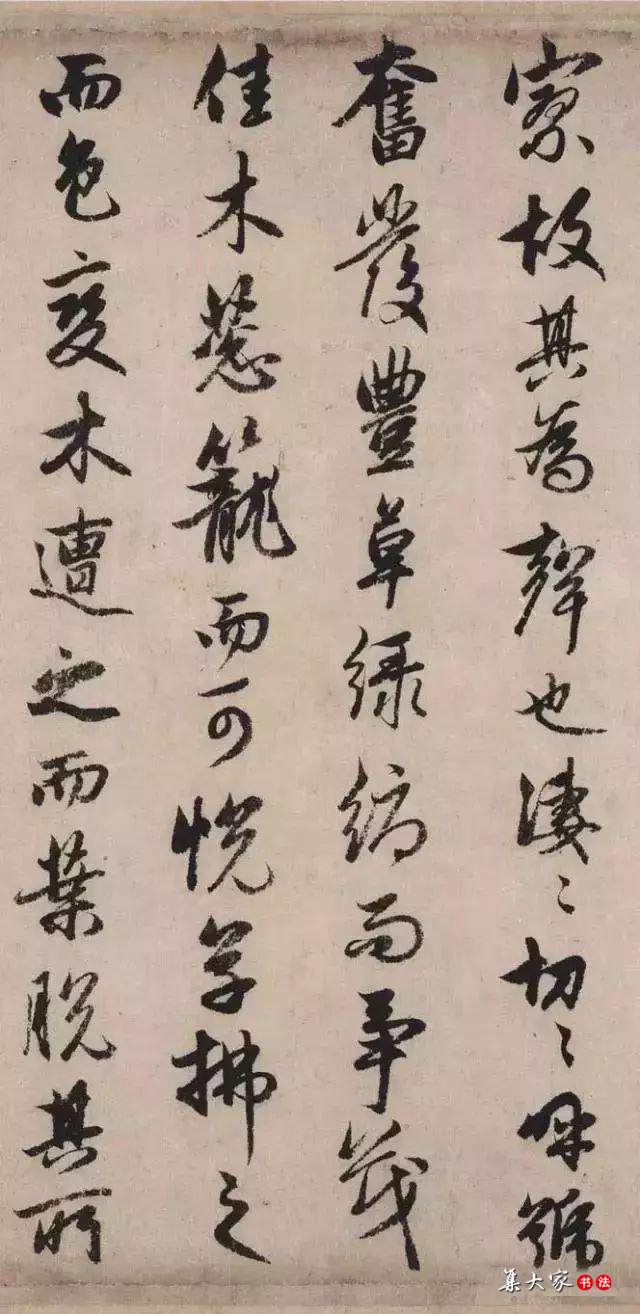 寥故其為聲也淒〻切〻呼號
奮發豐草綠縟而爭茂
佳木葱籠而可悅草拂之
而色變木遭之而葉脫其所
集大家書法